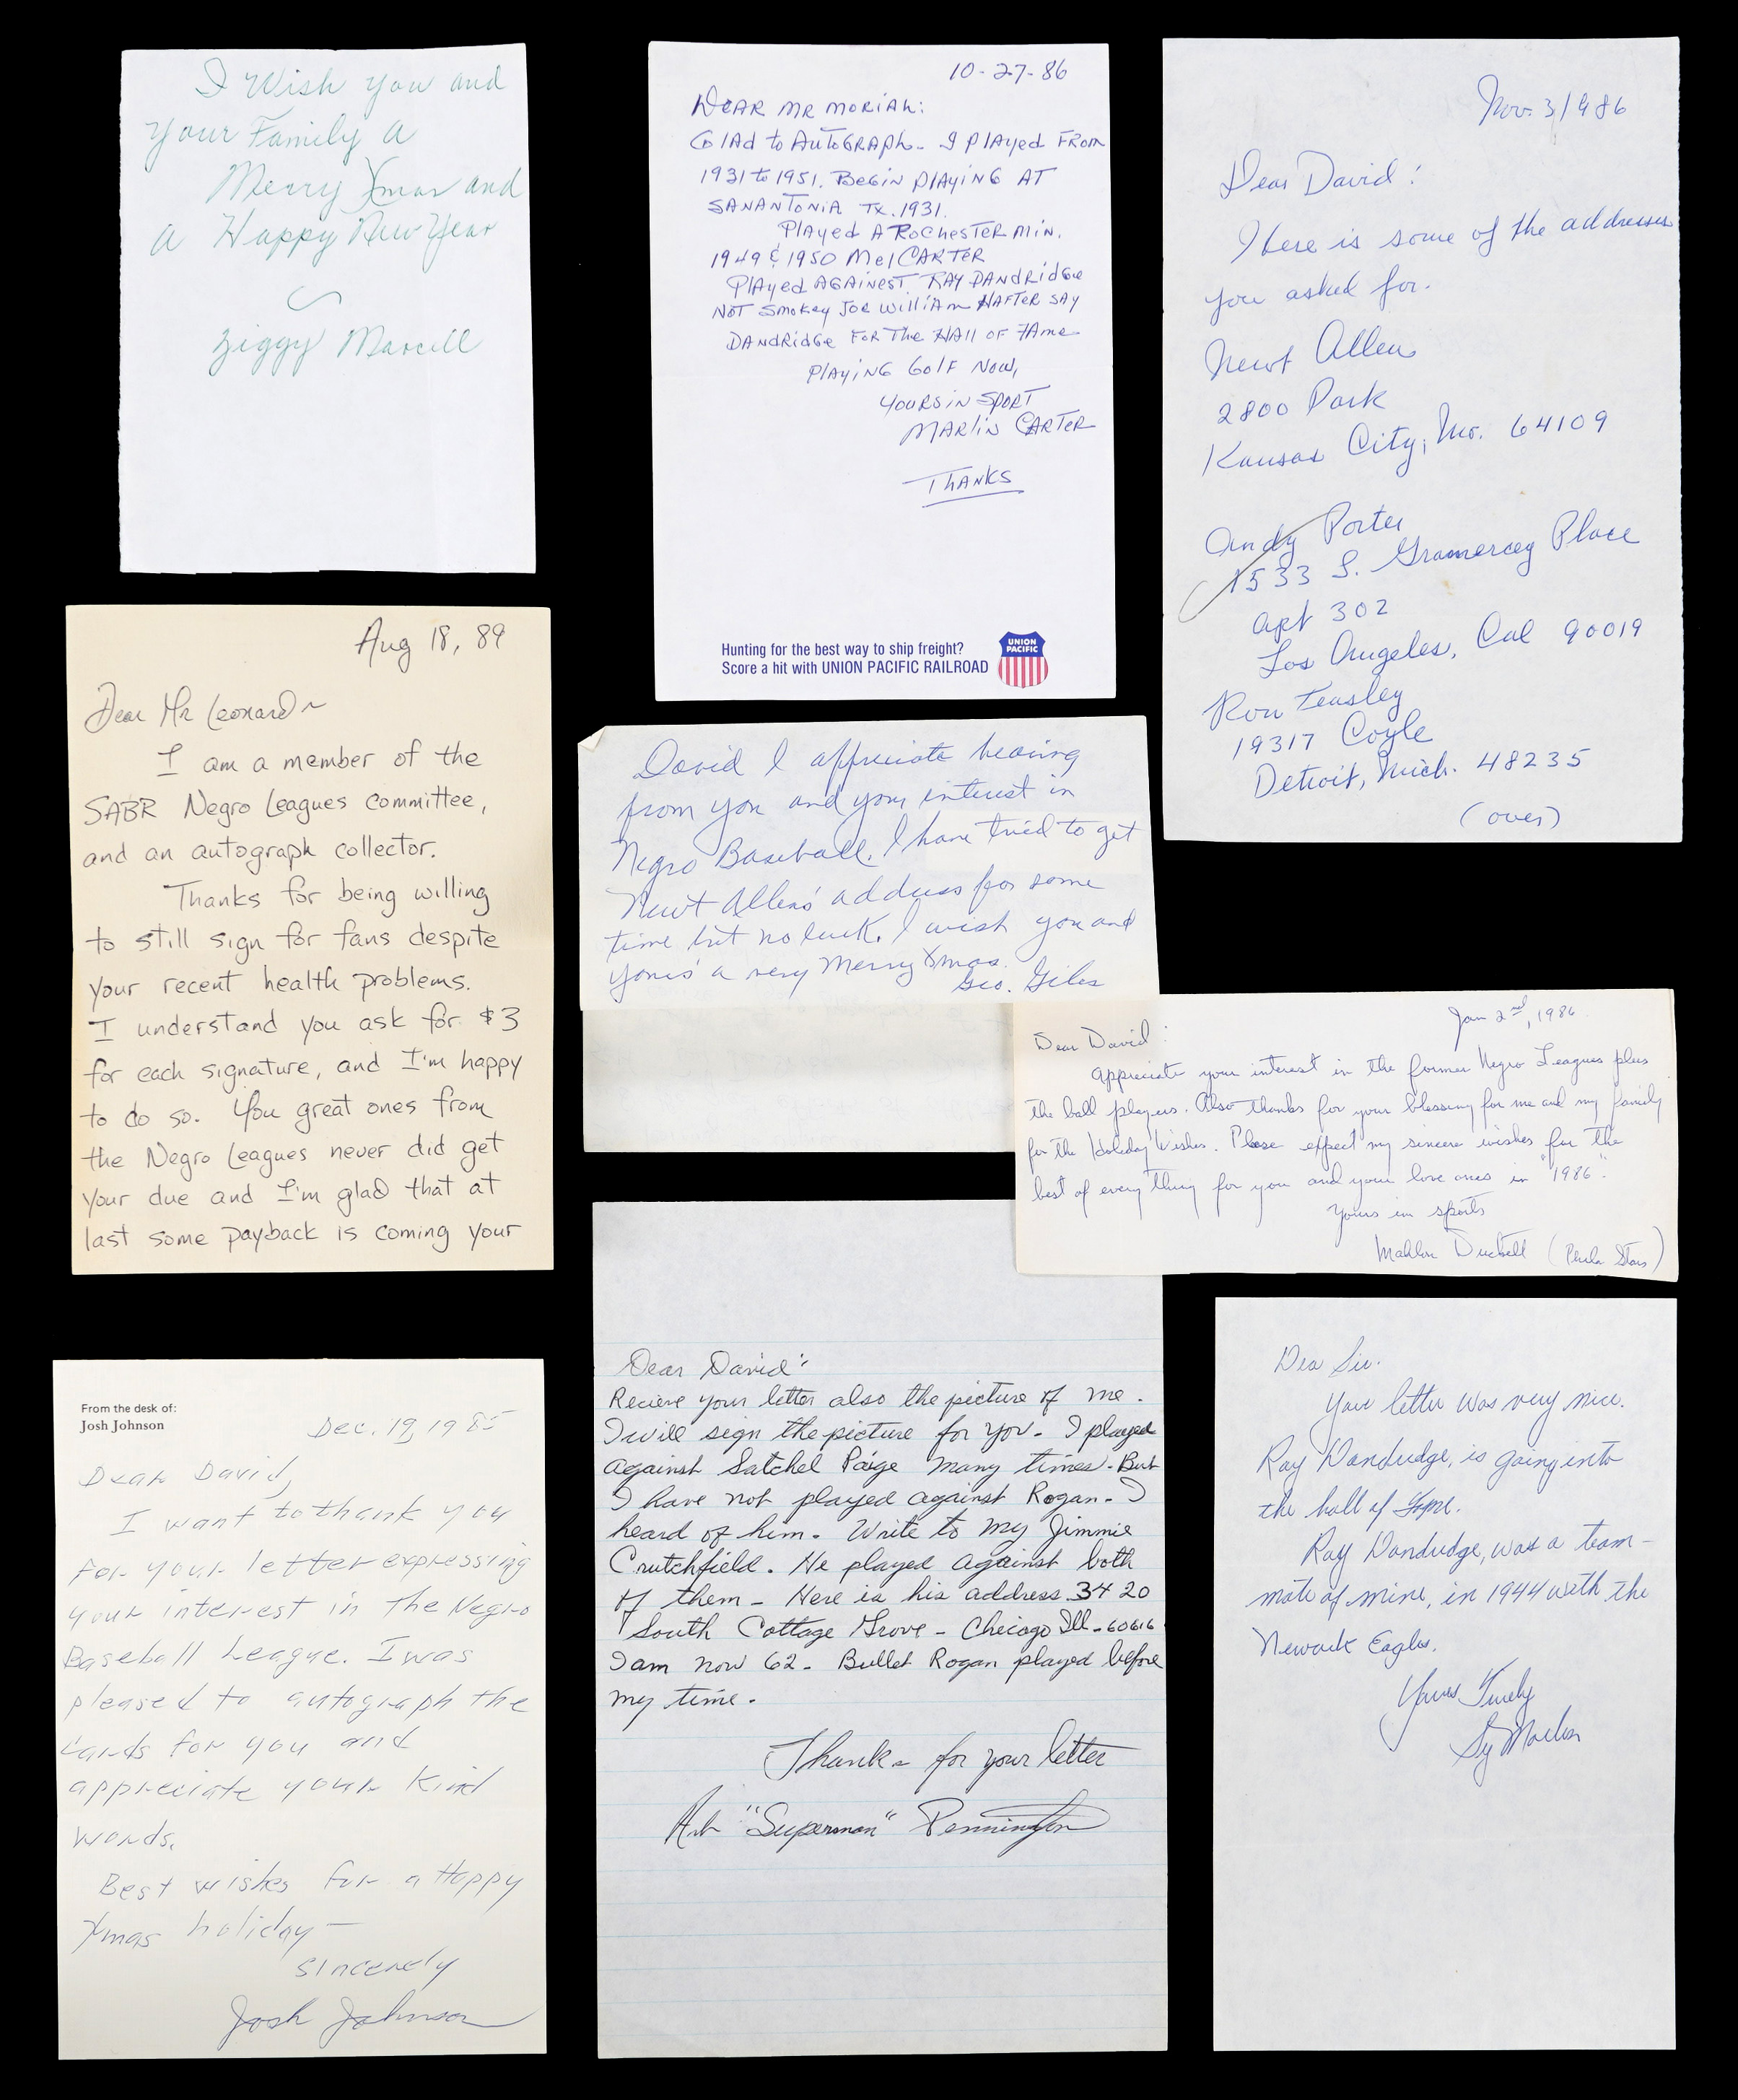 I Wish you and
your Family a
Merry Xmas and
a Happy New Year
Ziggy Marcell
10-27-86
DEAR MR MORIAH:
GlAd to AUTOGRAPh - I PlAYed FROM
1931 to 1951. BEGiN PlAYiNG AT
SANANTONiA TX. 1931.
PlAYed A ROCHESTER MiN.
1949 & 1950 Mel CARTER
PlAYed AGAiNEST RAY DANdRidGe
NOT SmOKeY JOE WilliAm HAFTER SAY
DANdRidGe FOR The HAll OF FAme
PlAYiNG GOlF NOW,
YOURS iN SPORT
MARliN CARTER
ThANKS
Hunting for the best way to ship freight?
Score a hit with UNION PACIFIC RAILROAD
UNION
PACIFIC
Nov. 3/986
Dear David:
Here is some of the addresses
you asked for.
Newt Allen
2800 Park
Kansas City, Mo. 64109
Andy Porter
1533 S. Gramercey Place
apt 302
Los Angeles, Cal 90019
Ron Teasley
19317 Coyle
Detroit, Mich. 48235
(over)
Aug 18, 89
Dear Mr Leonard~
I am a member of the
SABR Negro Leagues committee,
and an autograph collector.
Thanks for being willing
to still sign for fans despite
your recent health problems.
I understand you ask for $3
for each signature, and I'm happy
to do so. You great ones from
the Negro Leagues never did get
your due and I'm glad that at
last some payback is coming your
David I appreciate hearing
from you and your interest in
Negro Baseball. I have tried to get
Newt Allens' address for some
time but no luck. I wish you and
yours' a very Merry Xmas.
Geo. Giles
Jan 2nd, 1986
Dear David:
Appreciate your interest in the former Negro Leagues plus
the ball players. Also thanks for your blessing for me and my family
for the Holiday Wishes. Please expect my sincere wishes for the
best of every thing for you and your love ones in "1986".
Yours in sports
Mahlon Duckett (Phila Stars)
From the desk of:
Josh Johnson
Dec. 19, 1985
Dear David,
I want to thank you
for your letter expressing
your interest in the Negro
Baseball League. I was
pleased to autograph the
cards for you and
appreciate your kind
words.
Best wishes for a Happy
Xmas holiday—
Sincerely
Josh Johnson
Dear David:
Recieve your letter also the picture of me.
I will sign the picture for you. I played
against Satchel Paige many times. But
I have not played against Rogan - I
heard of him. Write to my Jimmie
Crutchfield. He played against both
of them - Here is his address 3420
South Cottage Grove - Chicago Ill - 60616
I am now 62 - Bullet Rogan played before
my time.
Thanks for your letter
Art "Superman" Pennington
Dea Sir.
Your letter was very nice.
Ray Dandridge, is going into
the hall of Fame.
Ray Dandridge, was a team-
mate of mine, in 1944 with the
Newark Eagles.
Yours Truely
Sy Morton